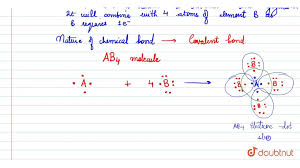 It will combine with 4 atoms of element B as
B requires 1e⁻
Nature of chemical bond → Covalent bond
AB₄ molecule
A + 4 B → B B A B B
AB₄ electron-dot
doubtnut